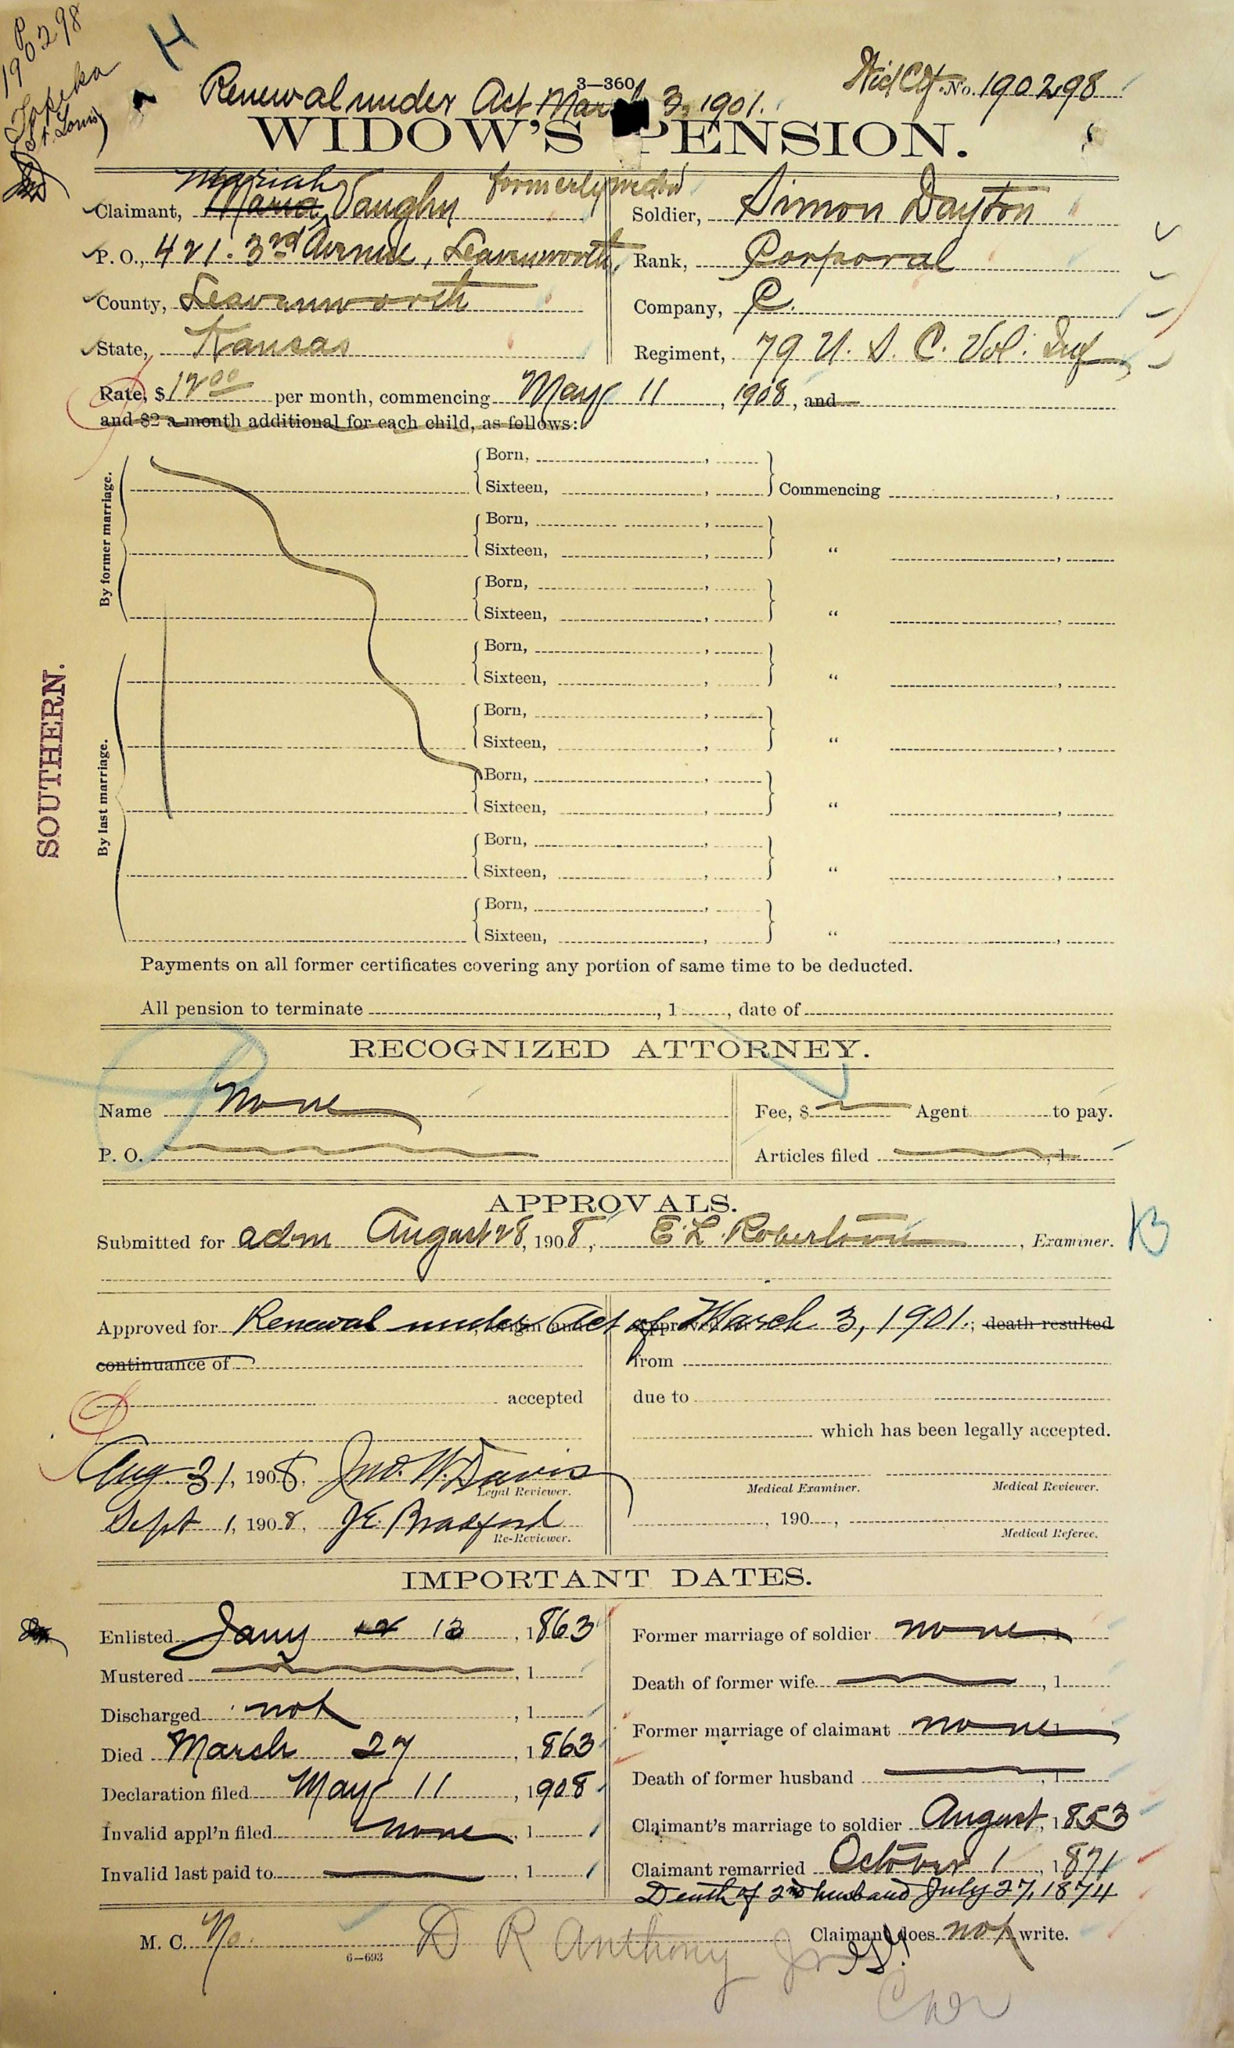 P
190298
Topeka
(St. Louis)
H
3—360
Wid Ctf. No. 190298
Renewal under Act March 3, 1901.
WIDOW'S PENSION.
Mariah formerly wid
Claimant, Maria, Vaughn
P. O., 421. 3rd Avenue, Leavenworth,
County, Leavenworth
State, Kansas
Soldier, Simon Dayton
Rank, Corporal
Company, C.
Regiment, 79 U. S. C. Vol. Inf
Rate, $12 00 per month, commencing May 11, 1908, and
and $2 a month additional for each child, as follows:
By former marriage.
By last marriage.
SOUTHERN.
Born, ,
Sixteen, , Commencing ,
Born, ,
Sixteen, , “ ,
Born, ,
Sixteen, , “ ,
Born, ,
Sixteen, , “ ,
Born, ,
Sixteen, , “ ,
Born, ,
Sixteen, , “ ,
Born, ,
Sixteen, , “ ,
Born, ,
Sixteen, , “ ,
Payments on all former certificates covering any portion of same time to be deducted.
All pension to terminate , 1 , date of
RECOGNIZED ATTORNEY.
Name None
P. O.
Fee, $ Agent to pay.
Articles filed , 1
APPROVALS.
Submitted for adm August 28, 1908, E. L. Robertson, Examiner.
B
Approved for Renewal under Act of March 3, 1901.; death resulted
continuance of
accepted
from
due to
which has been legally accepted.
Aug 31, 1908, Jno. W. Davis
Legal Reviewer.
Sept 1, 1908, J E. Bradford
Re-Reviewer.
Medical Examiner. Medical Reviewer.
, 190 ,
Medical Referee.
IMPORTANT DATES.
Enlisted Jany 12 12, 1863
Mustered , 1
Discharged not , 1
Died March 27, 1863
Declaration filed May 11, 1908
Invalid appl'n filed none, 1
Invalid last paid to , 1
Former marriage of soldier none, 1
Death of former wife , 1
Former marriage of claimant none
Death of former husband , 1
Claimant's marriage to soldier August, 1853
Claimant remarried October 1, 1871
Death of 2nd husband July 27, 1874
M. C. No.
6—693
Claimant does not write.
D R Anthony Jr